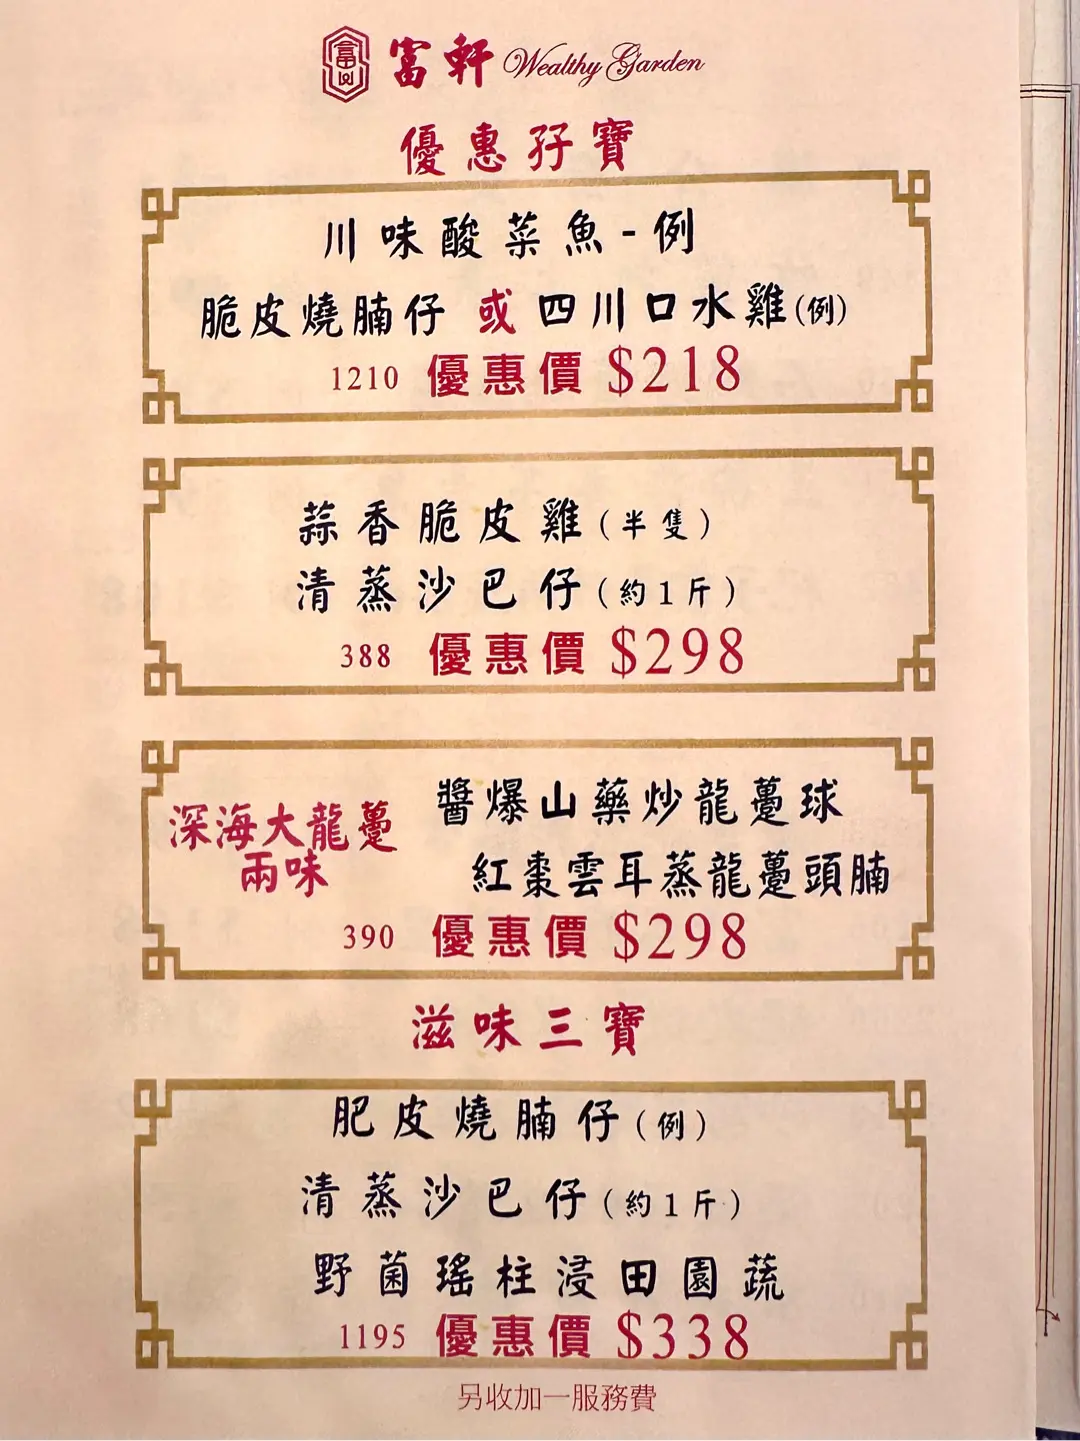 富軒 Wealthy Garden
優惠孖寶
川味酸菜魚-例
脆皮燒腩仔 或 四川口水雞(例)
1210 優惠價 $218
蒜香脆皮雞(半隻)
清蒸沙巴仔(約1斤)
388 優惠價 $298
深海大龍躉
兩味
醬爆山藥炒龍躉球
紅棗雲耳蒸龍躉頭腩
390 優惠價 $298
滋味三寶
肥皮燒腩仔(例)
清蒸沙巴仔(約1斤)
野菌瑤柱浸田園蔬
1195 優惠價 $338
另收加一服務費